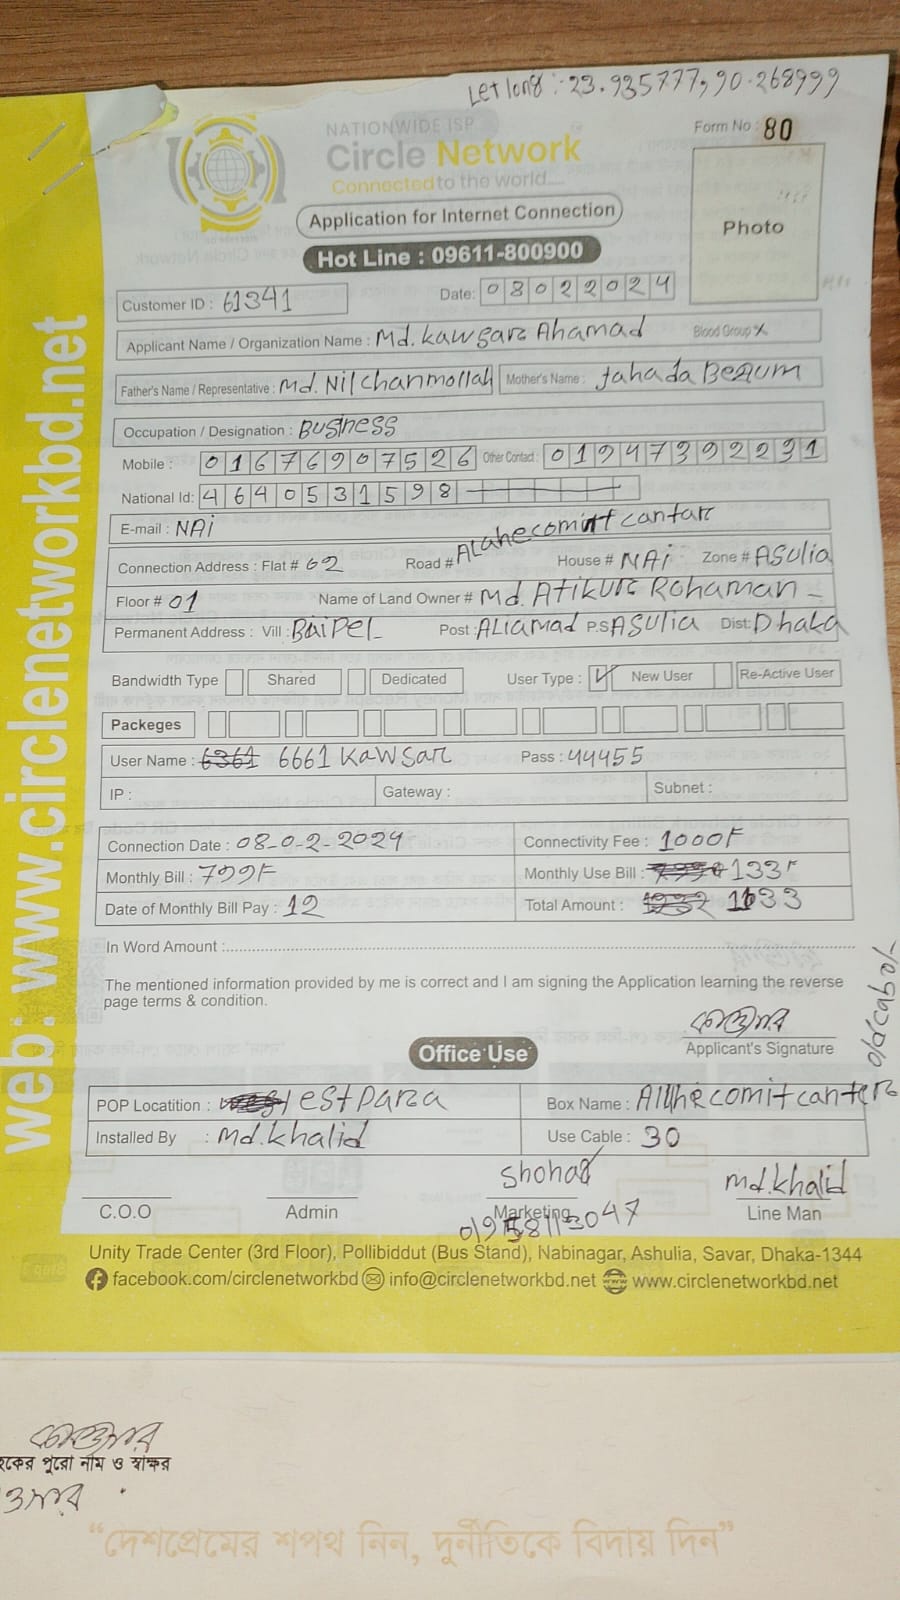 Let long :- 23.935777, 90.268999
NATIONWIDE ISP
Circle Network
Connected to the world....
Form No : 80
Photo
Application for Internet Connection
Hot Line : 09611-800900
Customer ID : 61341 Date: 08022024
Applicant Name / Organization Name : Md. Kawsar Ahamad Blood Group X
Father's Name / Representative : Md. Nil chanmollah Mother's Name : Jahada Begum
Occupation / Designation : Business
Mobile : 01676907526 Other Contact : 01947392231
National Id: 4640531598
E-mail : NAi
Connection Address : Flat # 02 Road # Alahecomitt cantar House # NAi Zone # ASulia
Floor # 01 Name of Land Owner # Md. Atikur Rohaman
Permanent Address : Vill : Baipel Post : Aliamad P.S ASulia Dist: Dhaka
Bandwidth Type Shared Dedicated User Type : ✓ New User Re-Active User
Packeges
User Name : 6361 6661 Kawsar Pass : 44455
IP : Gateway : Subnet :
Connection Date : 08-0-2-2024 Connectivity Fee : 1000F
Monthly Bill : 799F Monthly Use Bill : 133F
Date of Monthly Bill Pay : 12 Total Amount : 1133
In Word Amount :
The mentioned information provided by me is correct and I am signing the Application learning the reverse
page terms & condition.
কাওসার
Applicant's Signature
Office Use
POP Locatition : estpara Box Name : Allhe comit canter
Installed By : Md. Khalid Use Cable : 30
Shohag Md. Khalid
C.O.O Admin Marketing Line Man
Unity Trade Center (3rd Floor), Pollibiddut (Bus Stand), Nabinagar, Ashulia, Savar, Dhaka-1344
facebook.com/circlenetworkbd info@circlenetworkbd.net www.circlenetworkbd.net
web: www.circlenetworkbd.net
কাওসার
হকের পুরো নাম ও স্বাক্ষর
ওসার
“দেশপ্রেমের শপথ নিন, দুর্নীতিকে বিদায় দিন”